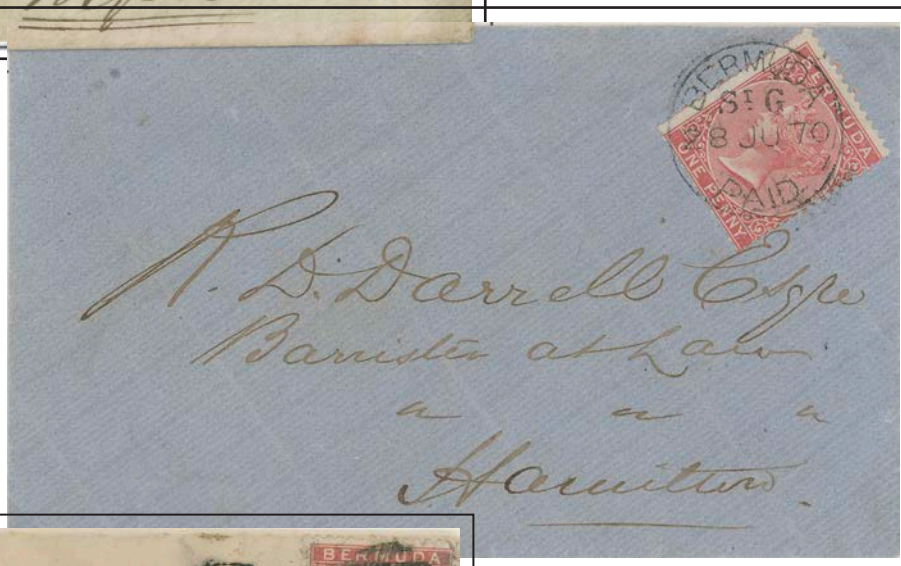 BERMUDA
BERMUDA
St G
8 JU 70
PAID
ONE PENNY
R. D. Darrell Esqre
Barrister at Law
" " "
Hamilton.
BERMUDA